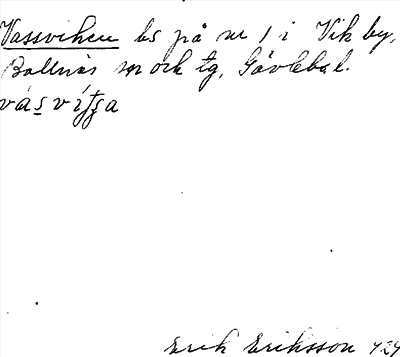 Vassviken bs på nr 1 i Vik by,
Bollnäs sn och tg, Gävlebol.
Erik Eriksson 424